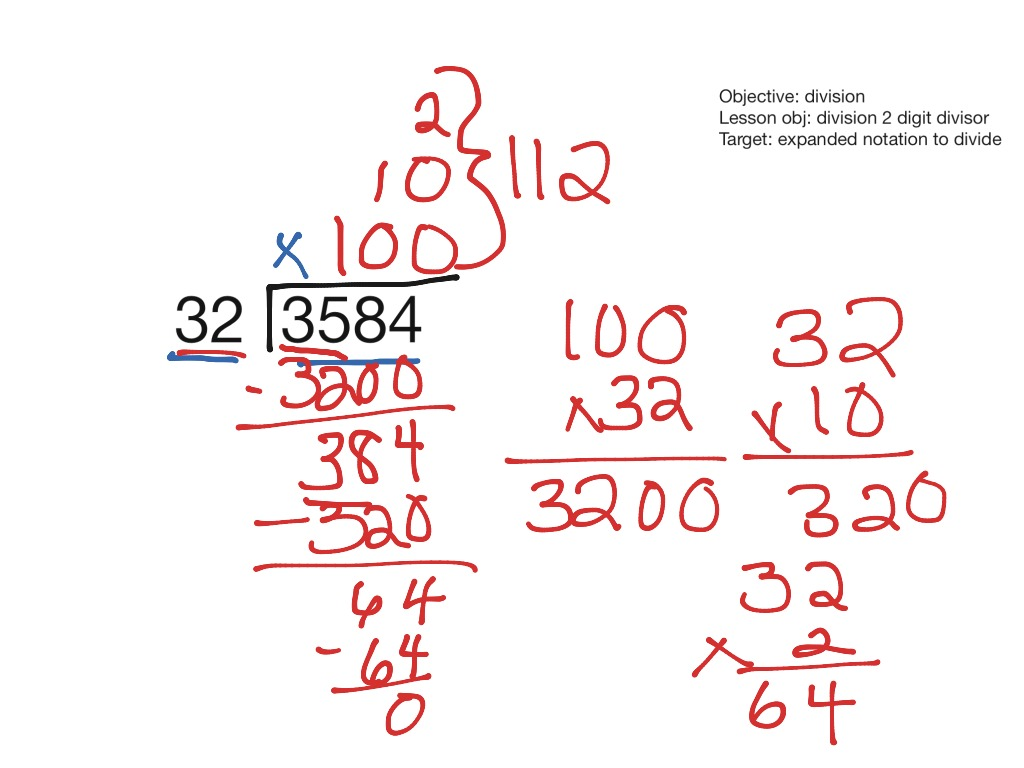 Objective: division
Lesson obj: division 2 digit divisor
Target: expanded notation to divide
2
10
112
x 100
32 3584
- 3200
384
- 320
64
- 64
0
100
x 32
3200
32
x 10
320
32
x 2
64